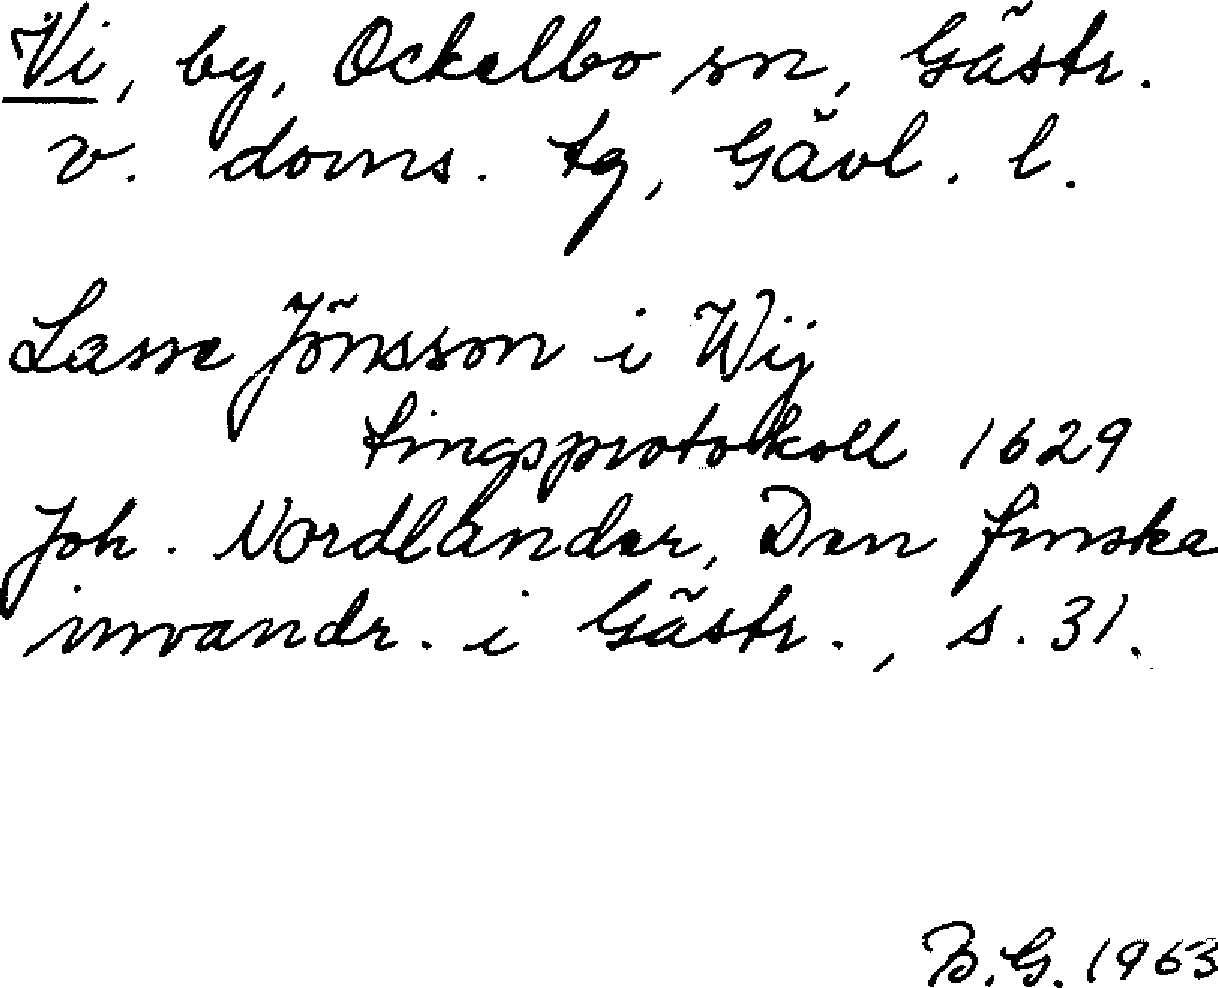 Vi, by, Ockelbo sn, Gästr.
v. doms. tg, Gävl. l.
Lasse Jönsson i Wij
tingsprotokoll 1629
Joh. Nordlander, Den finska
invandr. i Gästr., s. 31.
B.G. 1963